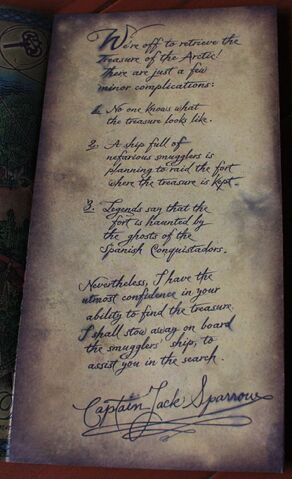 We're off to retrieve the
Treasure of the Arctic!
There are just a few
minor complications:
1. No one knows what
the treasure looks like.
2. A ship full of
nefarious smugglers is
planning to raid the fort
where the treasure is kept.
3. Legends say that the
fort is haunted by
the ghosts of the
Spanish Conquistadors.
Nevertheless, I have the
utmost confidence in your
ability to find the treasure.
I shall stow away on board
the smugglers' ship, to
assist you in the search.
Captain Jack Sparrow